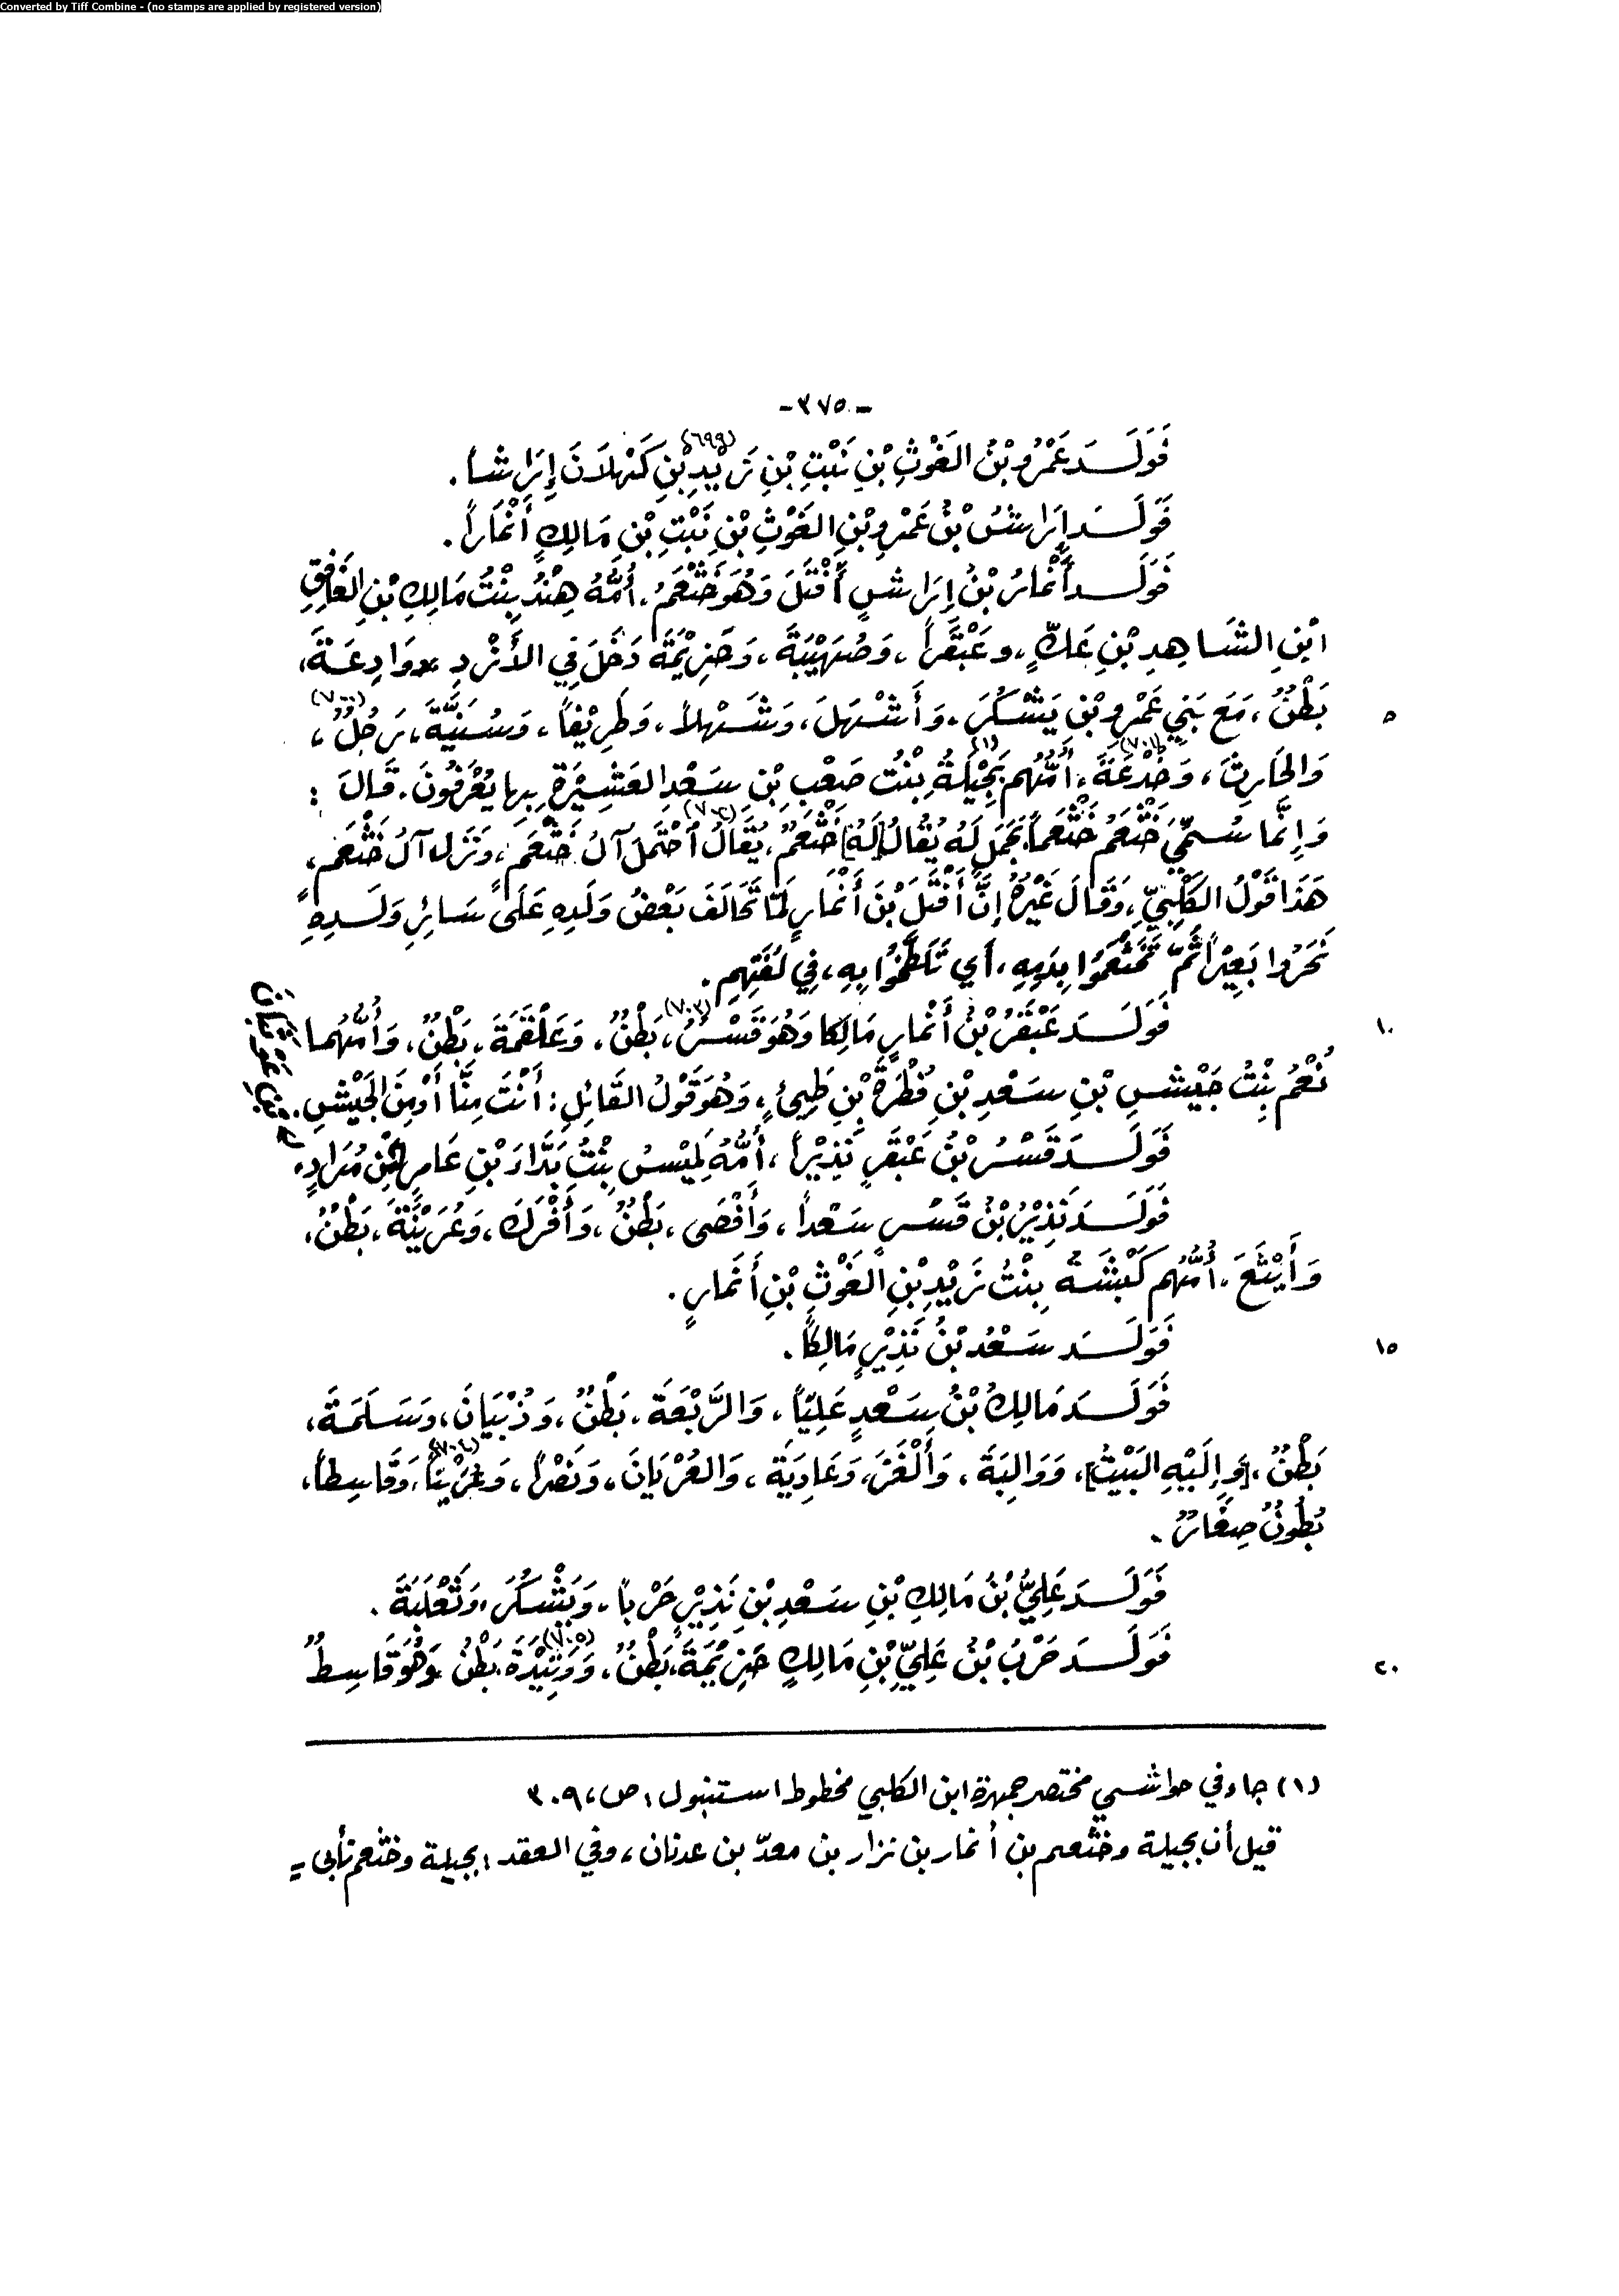 Converted by Tiff Combine - (no stamps are applied by registered version)
- ٣٧٥ -
فَوَلَدَ عَمْرُو بْنُ الغَوْثِ بْنِ نَبْتِ بْنِ زَيْدِ (٦٩٩) بْنِ كَهْلَانَ إِرَاشاً.
فَوَلَدَ إِرَاشُ بْنُ عَمْرِو بْنِ الغَوْثِ بْنِ نَبْتِ بْنِ مَالِكٍ أَنْمَاراً.
فَوَلَدَ أَنْمَارُ بْنُ إِرَاشٍ أَفْتَلَ وَهُوَ خَثْعَمُ، أُمُّهُ هِنْدُ بِنْتُ مَالِكِ بْنِ الغَافِقِ
ابْنِ الشَّاهِدِ بْنِ عَكٍّ، وعَبْقَراً، وَصُهَيْبَةَ، وَخَزِيْمَةَ دَخَلَ فِي الأَزْدِ، وَادِعَةَ،
بَطْنٌ، مَعَ بَنِي عَمْرِو بْنِ يَشْكُرَ، وَأَشْهَلَ، وَشَهْلاً، وَطَرِيْفاً، وَسُنَيَّةَ، رَجُلٌ (٧٠٠)،
٥
وَالحَارِثَ، وَخُدْعَةَ (٧٠١)، أُمُّهُم بَجِيْلَةُ (١) بِنْتُ صَعْبِ بْنِ سَعْدِ العَشِيْرَةِ بِهِا يُعْرَفُونَ. قَالَ:
وَإِنَّمَا سُمِّيَ خَثْعَمُ خَثْعَماً بِجَمَلٍ لَهُ يُقَالُ [لَهُ] خَثْعَمٌ (٧٠٢)، يُقَالُ احْتَمَلَ آلُ خَثْعَمَ، وَنَزَلَ آلُ خَثْعَمَ،
هَذَا قَوْلُ الكَلْبِيِّ، وَقَالَ غَيْرُهُ إِنَّ أَفْتَلَ بْنَ أَنْمَارٍ لَمَّا تَحَالَفَ بَعْضُ وَلَدِهِ عَلَى سَائِرِ وَلَدِهِ
نَحَرُوا بَعِيْراً ثُمَّ تَخَثْعَمُوا بِدَمِهِ، أَي تَلَطَّخُوا بِهِ، فِي لُغَتِهِم.
فَوَلَدَ عَبْقَرُ بْنُ أَنْمَارٍ مَالِكاً وَهُوَ قَسْرٌ (٧٠٣)، بَطْنٌ، وَعَلْقَمَةَ، بَطْنٌ، وَأُمُّهُما
١٠
نُعْمُ بِنْتُ جَيْشِ بْنِ سَعْدِ بْنِ فُطْرَةَ بْنِ طَيِّئٍ، وَهُوَ قَوْلُ القَائِلِ: أَنْتَ مِنَّا أَوْ مِنَ الجَيْشِ.
فَوَلَدَ قَسْرُ بْنُ عَبْقَرٍ نَذِيْراً، أُمُّهُ لَمِيْسُ بِنْتُ بَدَّاءَ بْنِ عَامِرِ بْنِ مُرَادٍ،
فَوَلَدَ نَذِيْرُ بْنُ قَسْرٍ سَعْداً، وَأَفْصَى، بَطْنٌ، وَأَفْرَكَ، وَعُرَيْنَةَ، بَطْنٌ،
وَأَيْثَعَ، أُمُّهُم كَبْشَةُ بِنْتُ زَيْدِ بْنِ الغَوْثِ بْنِ أَنْمَارٍ.
فَوَلَدَ سَعْدُ بْنُ نَذِيْرٍ مَالِكاً.
١٥
فَوَلَدَ مَالِكُ بْنُ سَعْدٍ عَلِيّاً، وَالرَّبْعَةَ، بَطْنٌ، وَذُبْيَانَ، وَسَلَمَةَ،
بَطْنٌ، [وَإِلَيْهِ البَيْتُ]، وَوَالِبَةَ، وَأَلْغَزَ، وَعَادِيَةَ، وَالعُرْيَانَ، وَنَصْراً، وَعُرَيْناً (٧٠٤)، وَقَاسِطاً،
بُطُونٌ صِغَارٌ.
فَوَلَدَ عَلِيُّ بْنُ مَالِكِ بْنِ سَعْدِ بْنِ نَذِيْرٍ حَرْباً، وَيَشْكُرَ، وَثَعْلَبَةَ.
فَوَلَدَ حَرْبُ بْنُ عَلِيِّ بْنِ مَالِكٍ خَزِيْمَةَ، بَطْنٌ، وَوَتِيْدَةَ (٧٠٥)، بَطْنٌ وَهُوَ قَاسِطٌ
٢٠
(١) جاء في حواشي مختصر جمهرة ابن الكلبي مخطوط استنبول، ص، ٣٠٩
قيل أن بجيلة وخثعم بن أنمار بن نزار بن معدّ بن عدنان، وفي العقد: بجيلة وخثعم تأبى =